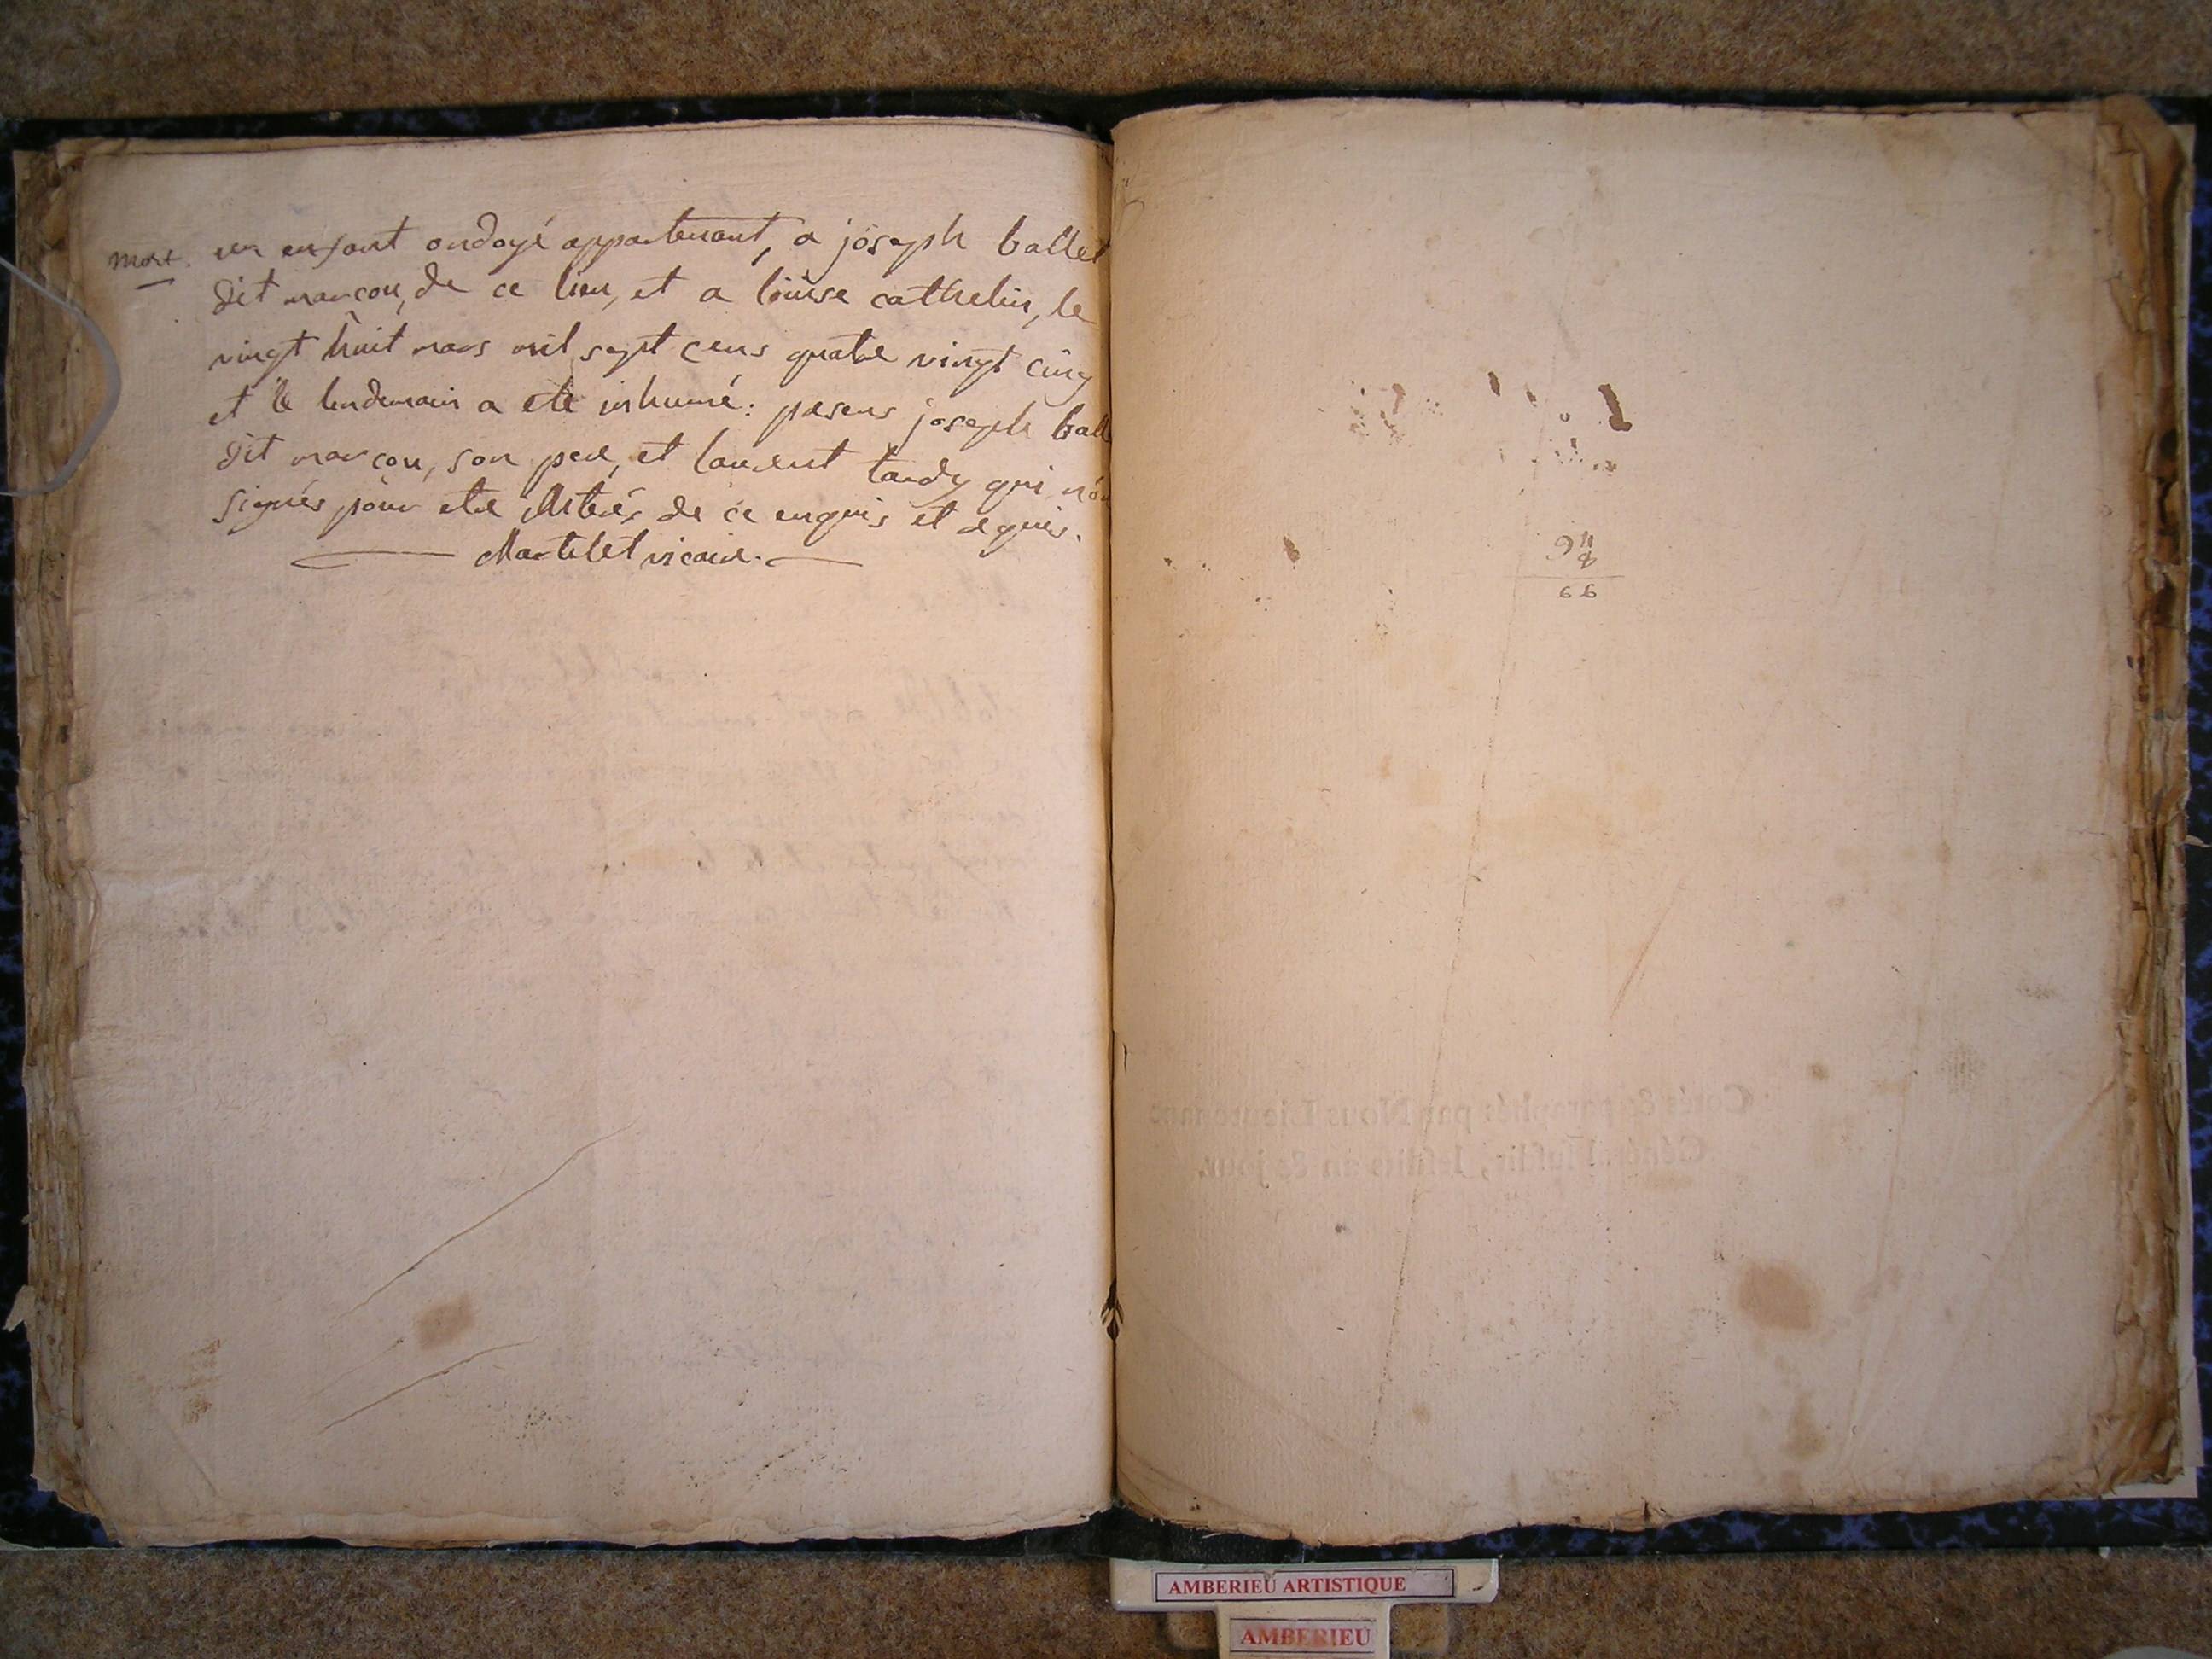 mort. un enfant ondoyé appartenant, a joseph ballet
dit marcou, de ce lieu, et a loüise cathelin, le
vingt huit mars mil sept cens quatre vingt cinq
et le lendemain a eté inhumé: presens joseph ball
dit marcou, son pere, et laurent tardy qui n'on
signés pour etre illiterés de ce enquis et requis.
Martelet vicaire.
66
Cotés & paraphés par Nous Lieutenant
Général susdit, lesdits an & jour.
AMBERIEU ARTISTIQUE
AMBERIEU